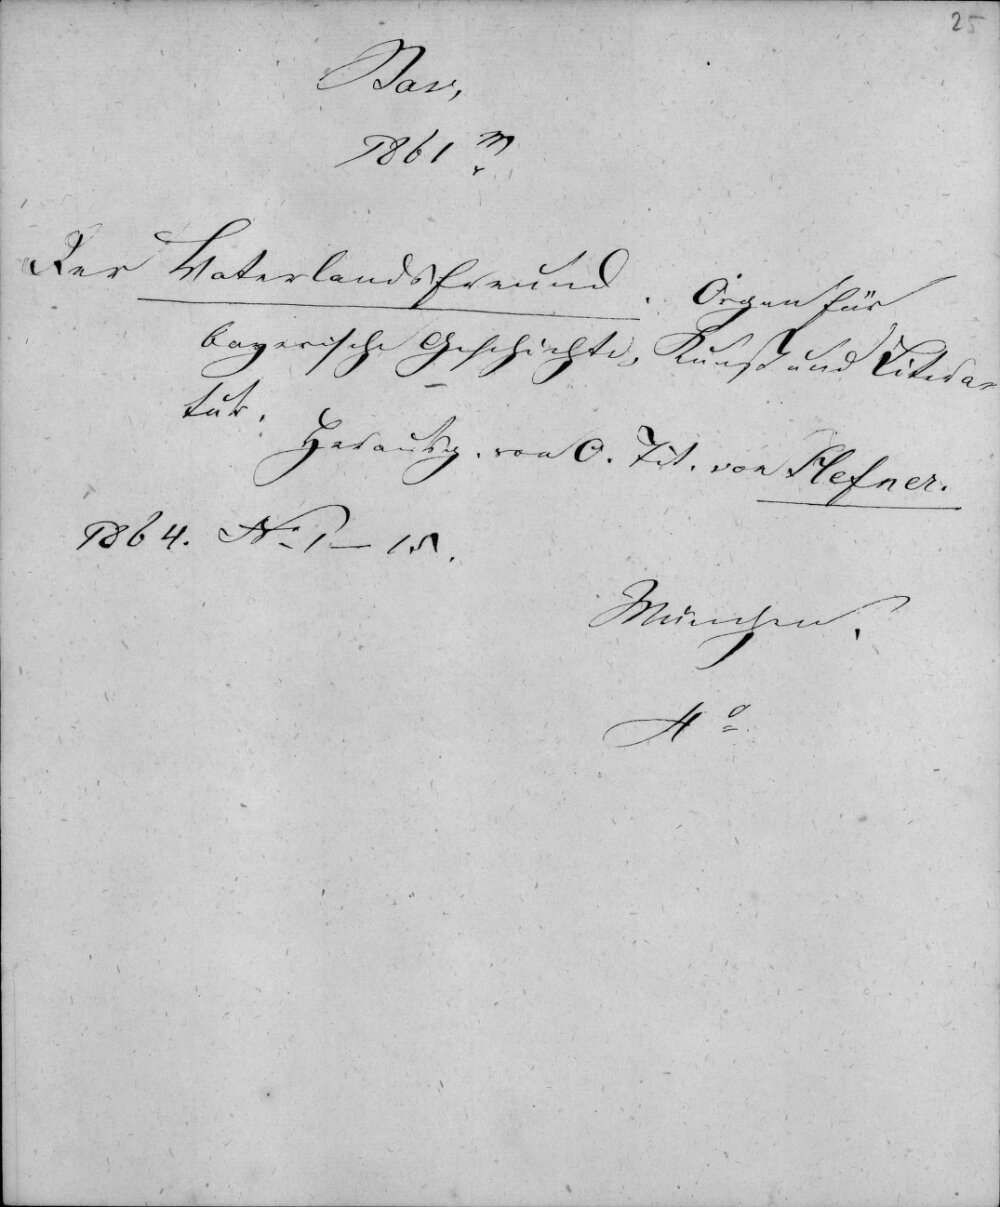 25
Bav.
1861 m
Der Vaterlandsfreund. Organ für
bayerische Geschichte, Kunst und Litera-
tur.
Herausg. von O. Tit. von Hefner.
1864. N. 1–15.
München.
4o